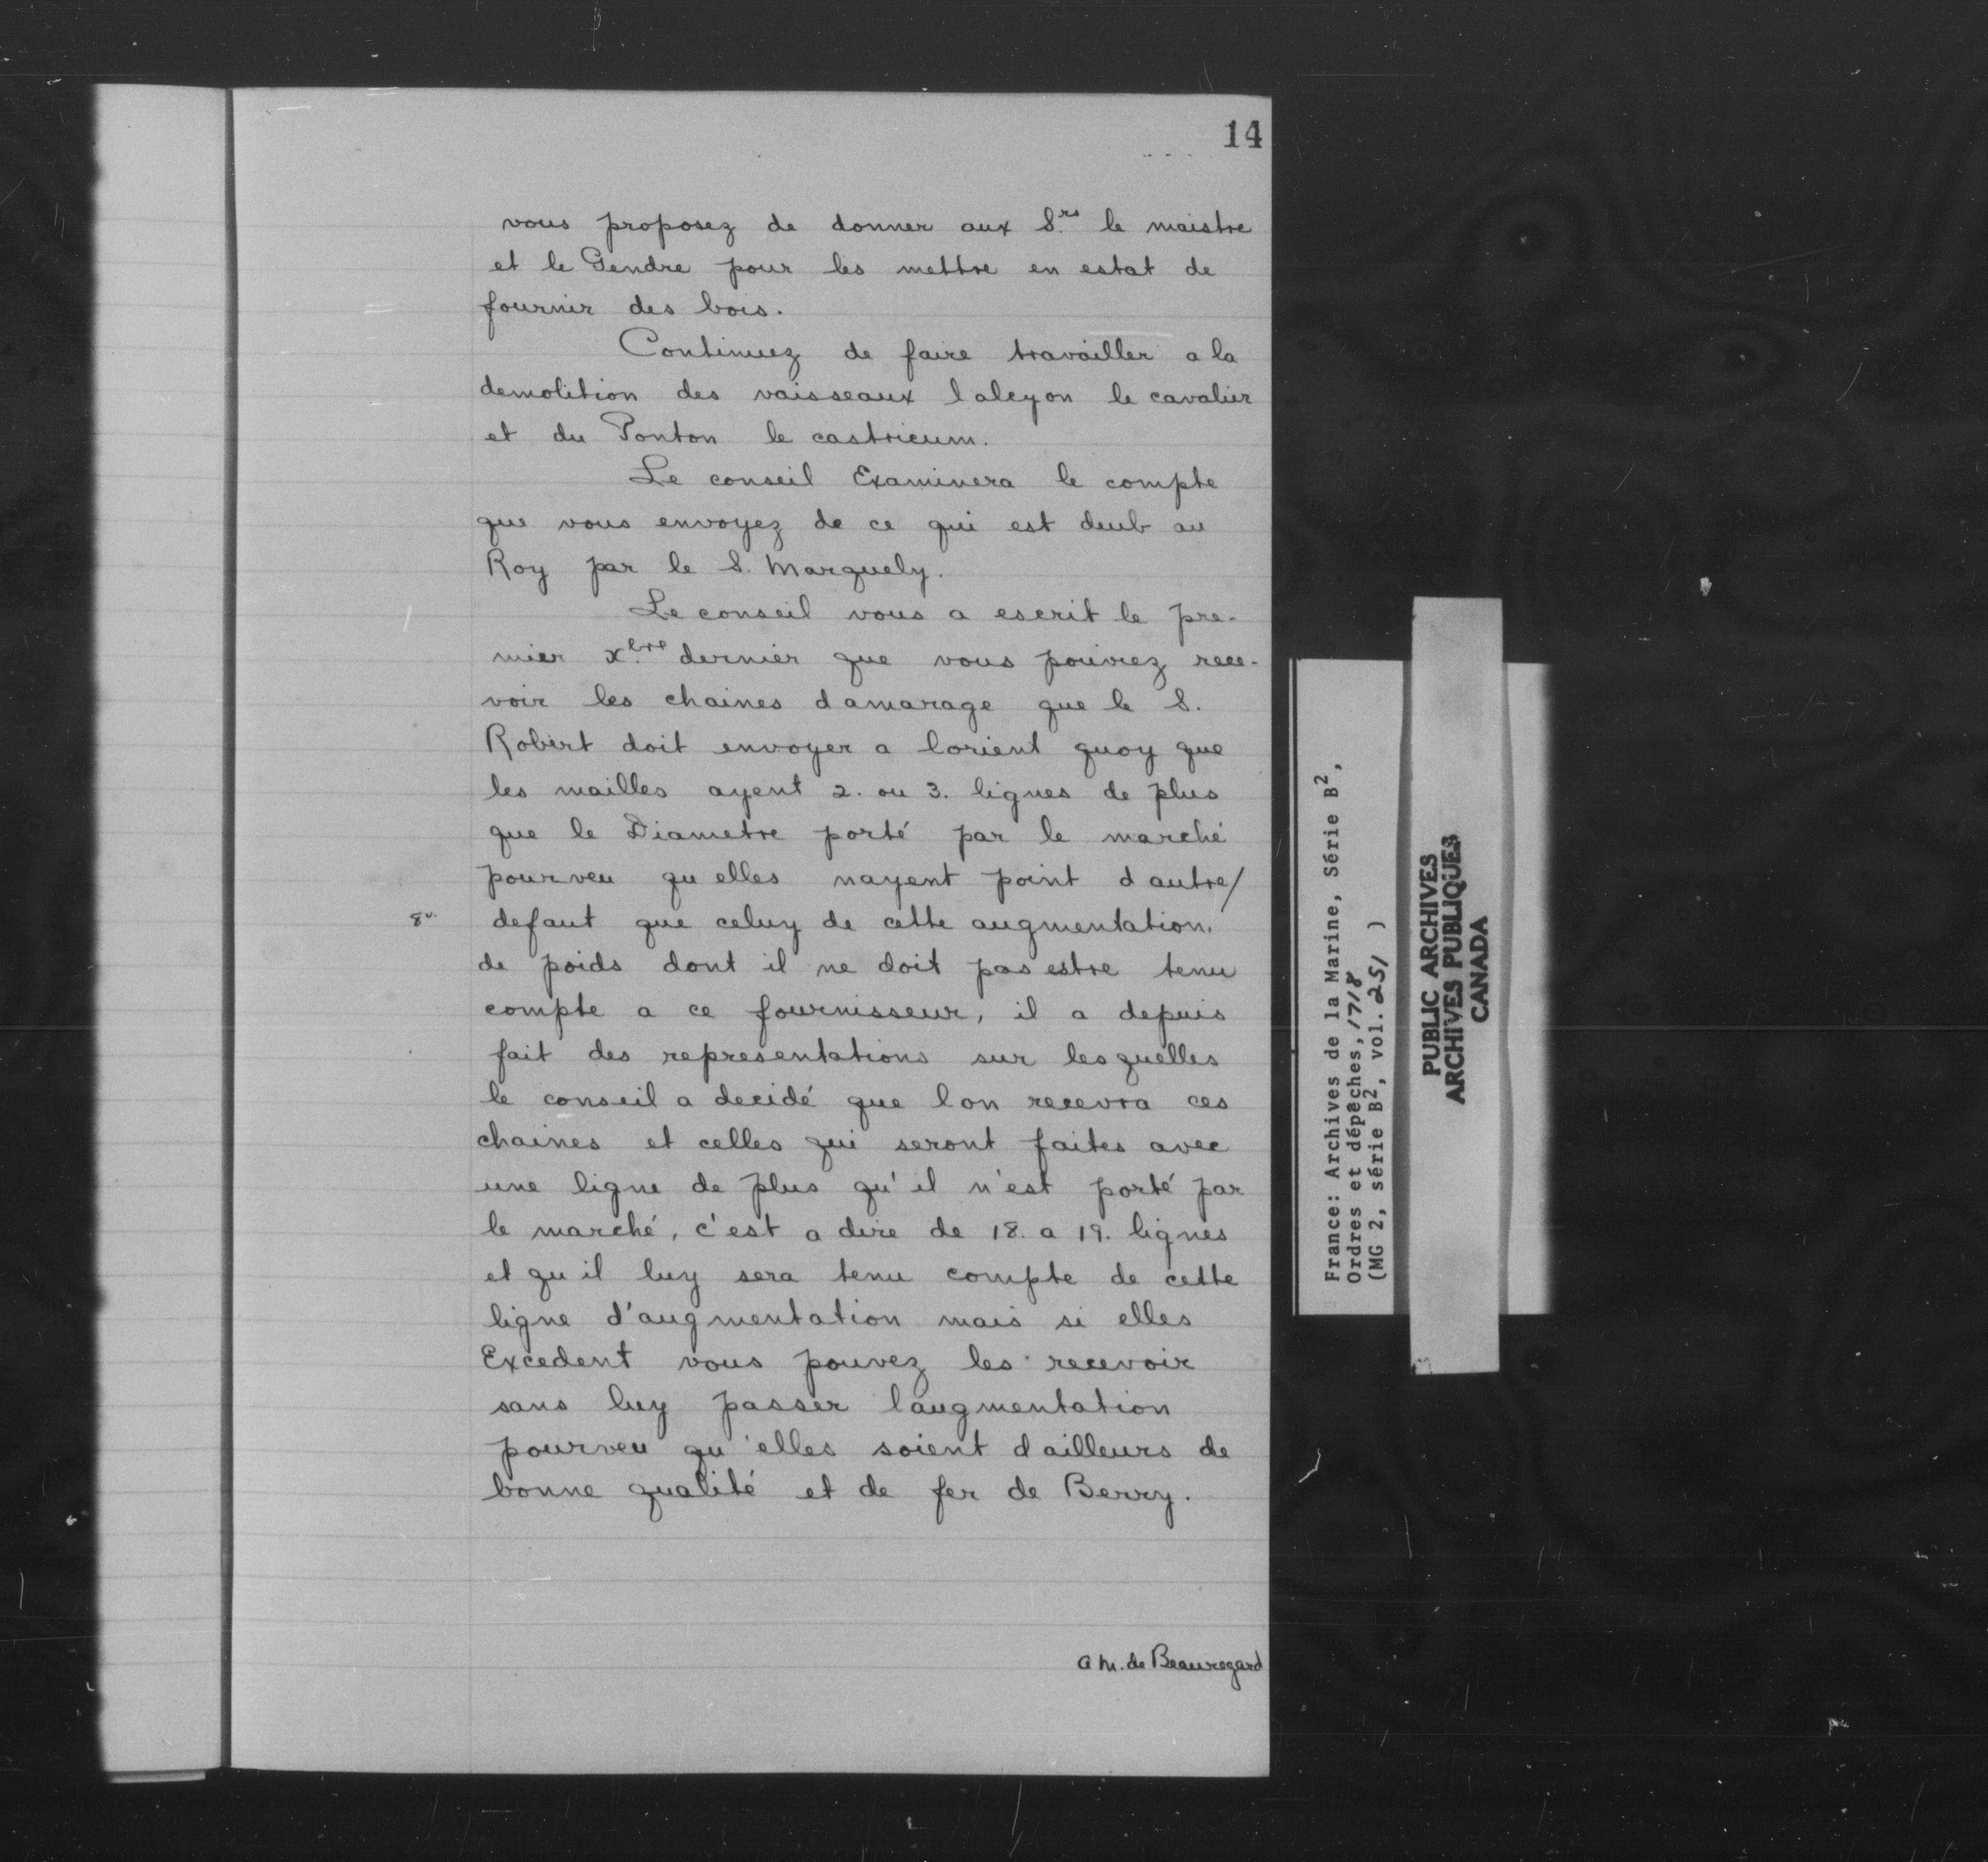 14
vous proposez de donner aux S.rs le maistre
et le Gendre pour les mettre en estat de
fournir des bois.
Continuez de faire travailler a la
demolition des vaisseaux lalcyon le cavalier
et du Ponton le castricum.
Le conseil Examinera le compte
que vous envoyez de ce qui est deub au
Roy par le S. Marquely.
Le conseil vous a escrit le pre-
mier xbre dernier que vous pouviez rece-
voir les chaines damarage que le S.
Robert doit envoyer a lorient quoy que
les mailles ayent 2. ou 3. lignes de plus
que le Diametre porté par le marché
pourveu qu elles nayent point d autre/
8v. defaut que celuy de cette augmentation.
de poids dont il ne doit pas estre tenu
compte a ce fournisseur, il a depuis
fait des representations sur lesquelles
le conseil a decidé que lon recevra ces
chaines et celles qui seront faites avec
une ligne de plus qu'il n'est porté par
le marché, c'est a dire de 18. a 19. lignes
et qu il luy sera tenu compte de cette
ligne d'augmentation mais si elles
Excedent vous pouvez les recevoir
sans luy passer laugmentation
pourveu qu'elles soient d ailleurs de
bonne qualité et de fer de Berry.
a M. de Beauregard
France: Archives de la Marine, Série B2,
Ordres et dépêches, 1718
(MG 2, série B2, vol. 251 )
PUBLIC ARCHIVES
ARCHIVES PUBLIQUES
CANADA